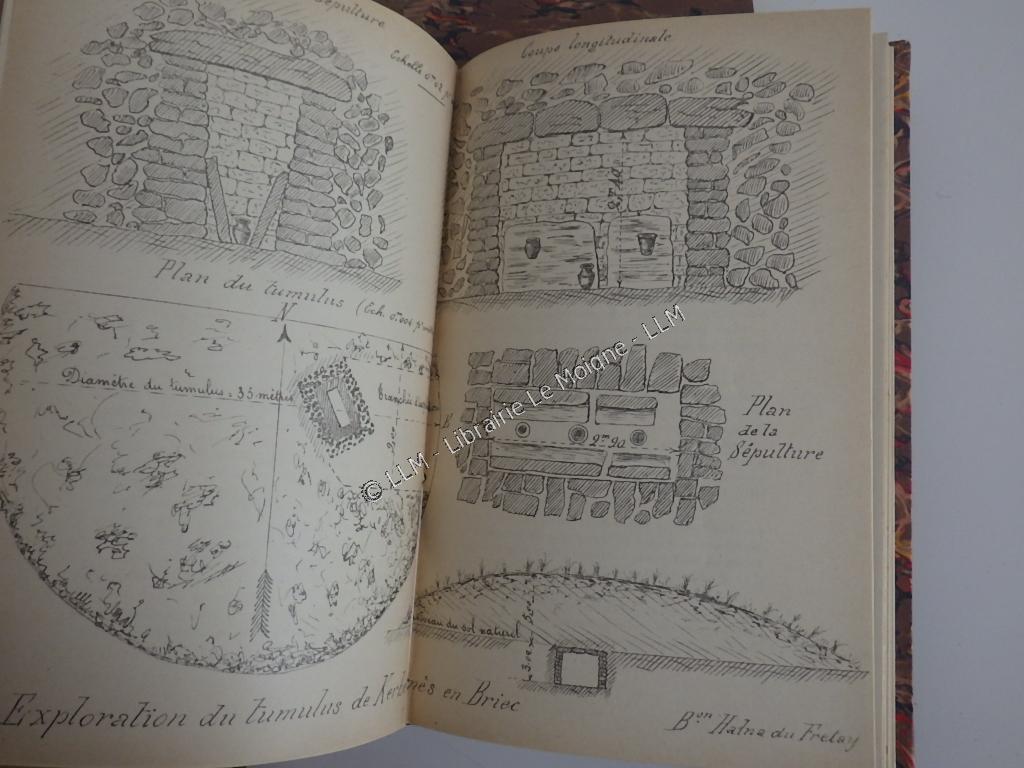 Sépulture
Echelle
Plan du tumulus (Ech.
N
Diamètre du tumulus = 35 mètres
Tranchée
Coupe longitudinale
2m90
Plan
de la
Sépulture
Niveau du sol naturel
Exploration du tumulus de en Briec
Bon Halna du Fretay
© LLM - Librairie Le Moigne - LLM